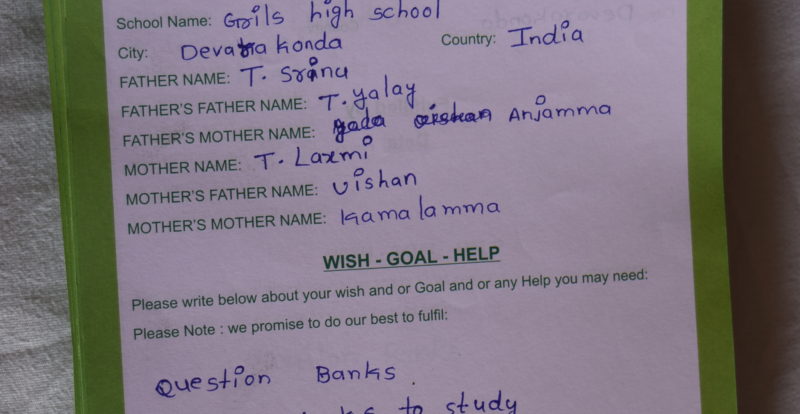 School Name: Grils high school
City: Devarakonda Country: India
FATHER NAME: T. Srinu
FATHER'S FATHER NAME: T. yalay
FATHER'S MOTHER NAME: Anjamma
MOTHER NAME: T. Laxmi
MOTHER'S FATHER NAME: vishan
MOTHER'S MOTHER NAME: Kamalamma
WISH - GOAL - HELP
Please write below about your wish and or Goal and or any Help you may need:
Please Note : we promise to do our best to fulfil:
Question Banks .
to study